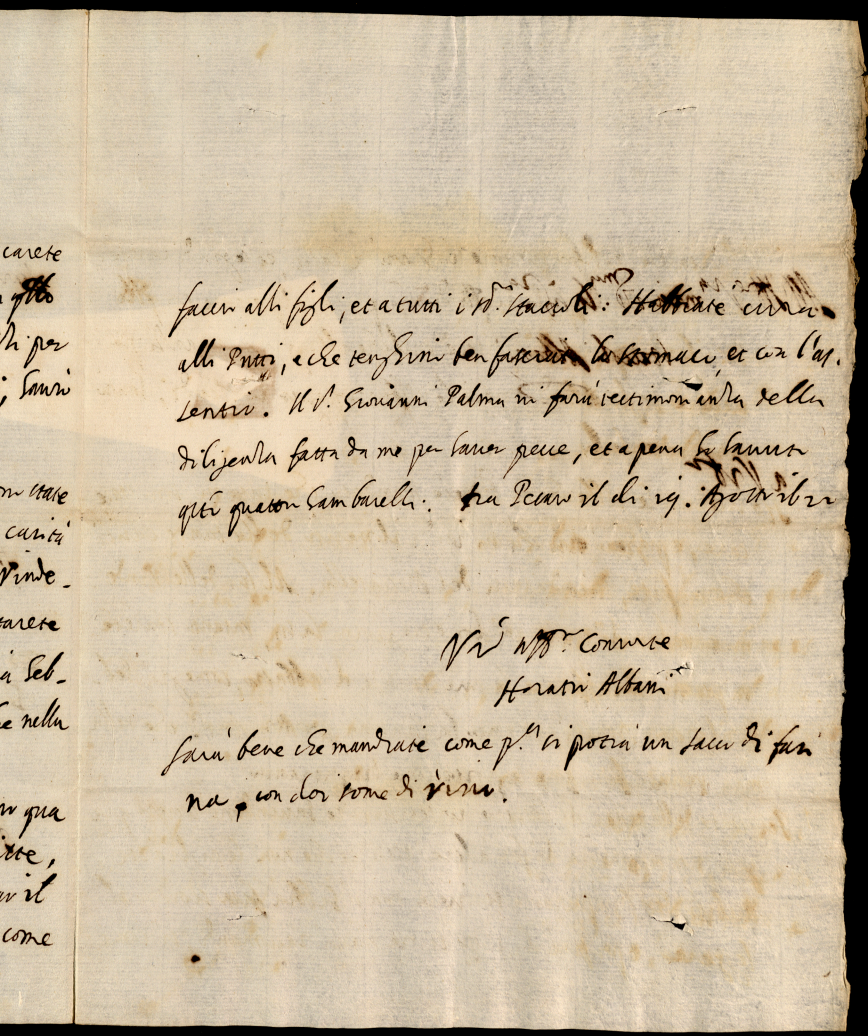 carete
q.sto
per
state
carità
Vinde-
tarete
Seb-
nella
qua
il
come
alli figli, et a tutti i Staccoli: Habbiate cura
alli Putti, e che tenghini ben lo stomaco, et con l'as-
sentio. Il S.r Giovanni Palma vi farà testimonianza della
diligenza fatta da me per haver pesce, et a pena ho havuto
q.sti quattro Gambarelli. Pesaro il di 19. Agosto
Aff.mo Consorte
Horatio Albani
Sarà bene che mandiate come p.a si potrà un sacco di fari
na, con doi some di vino.